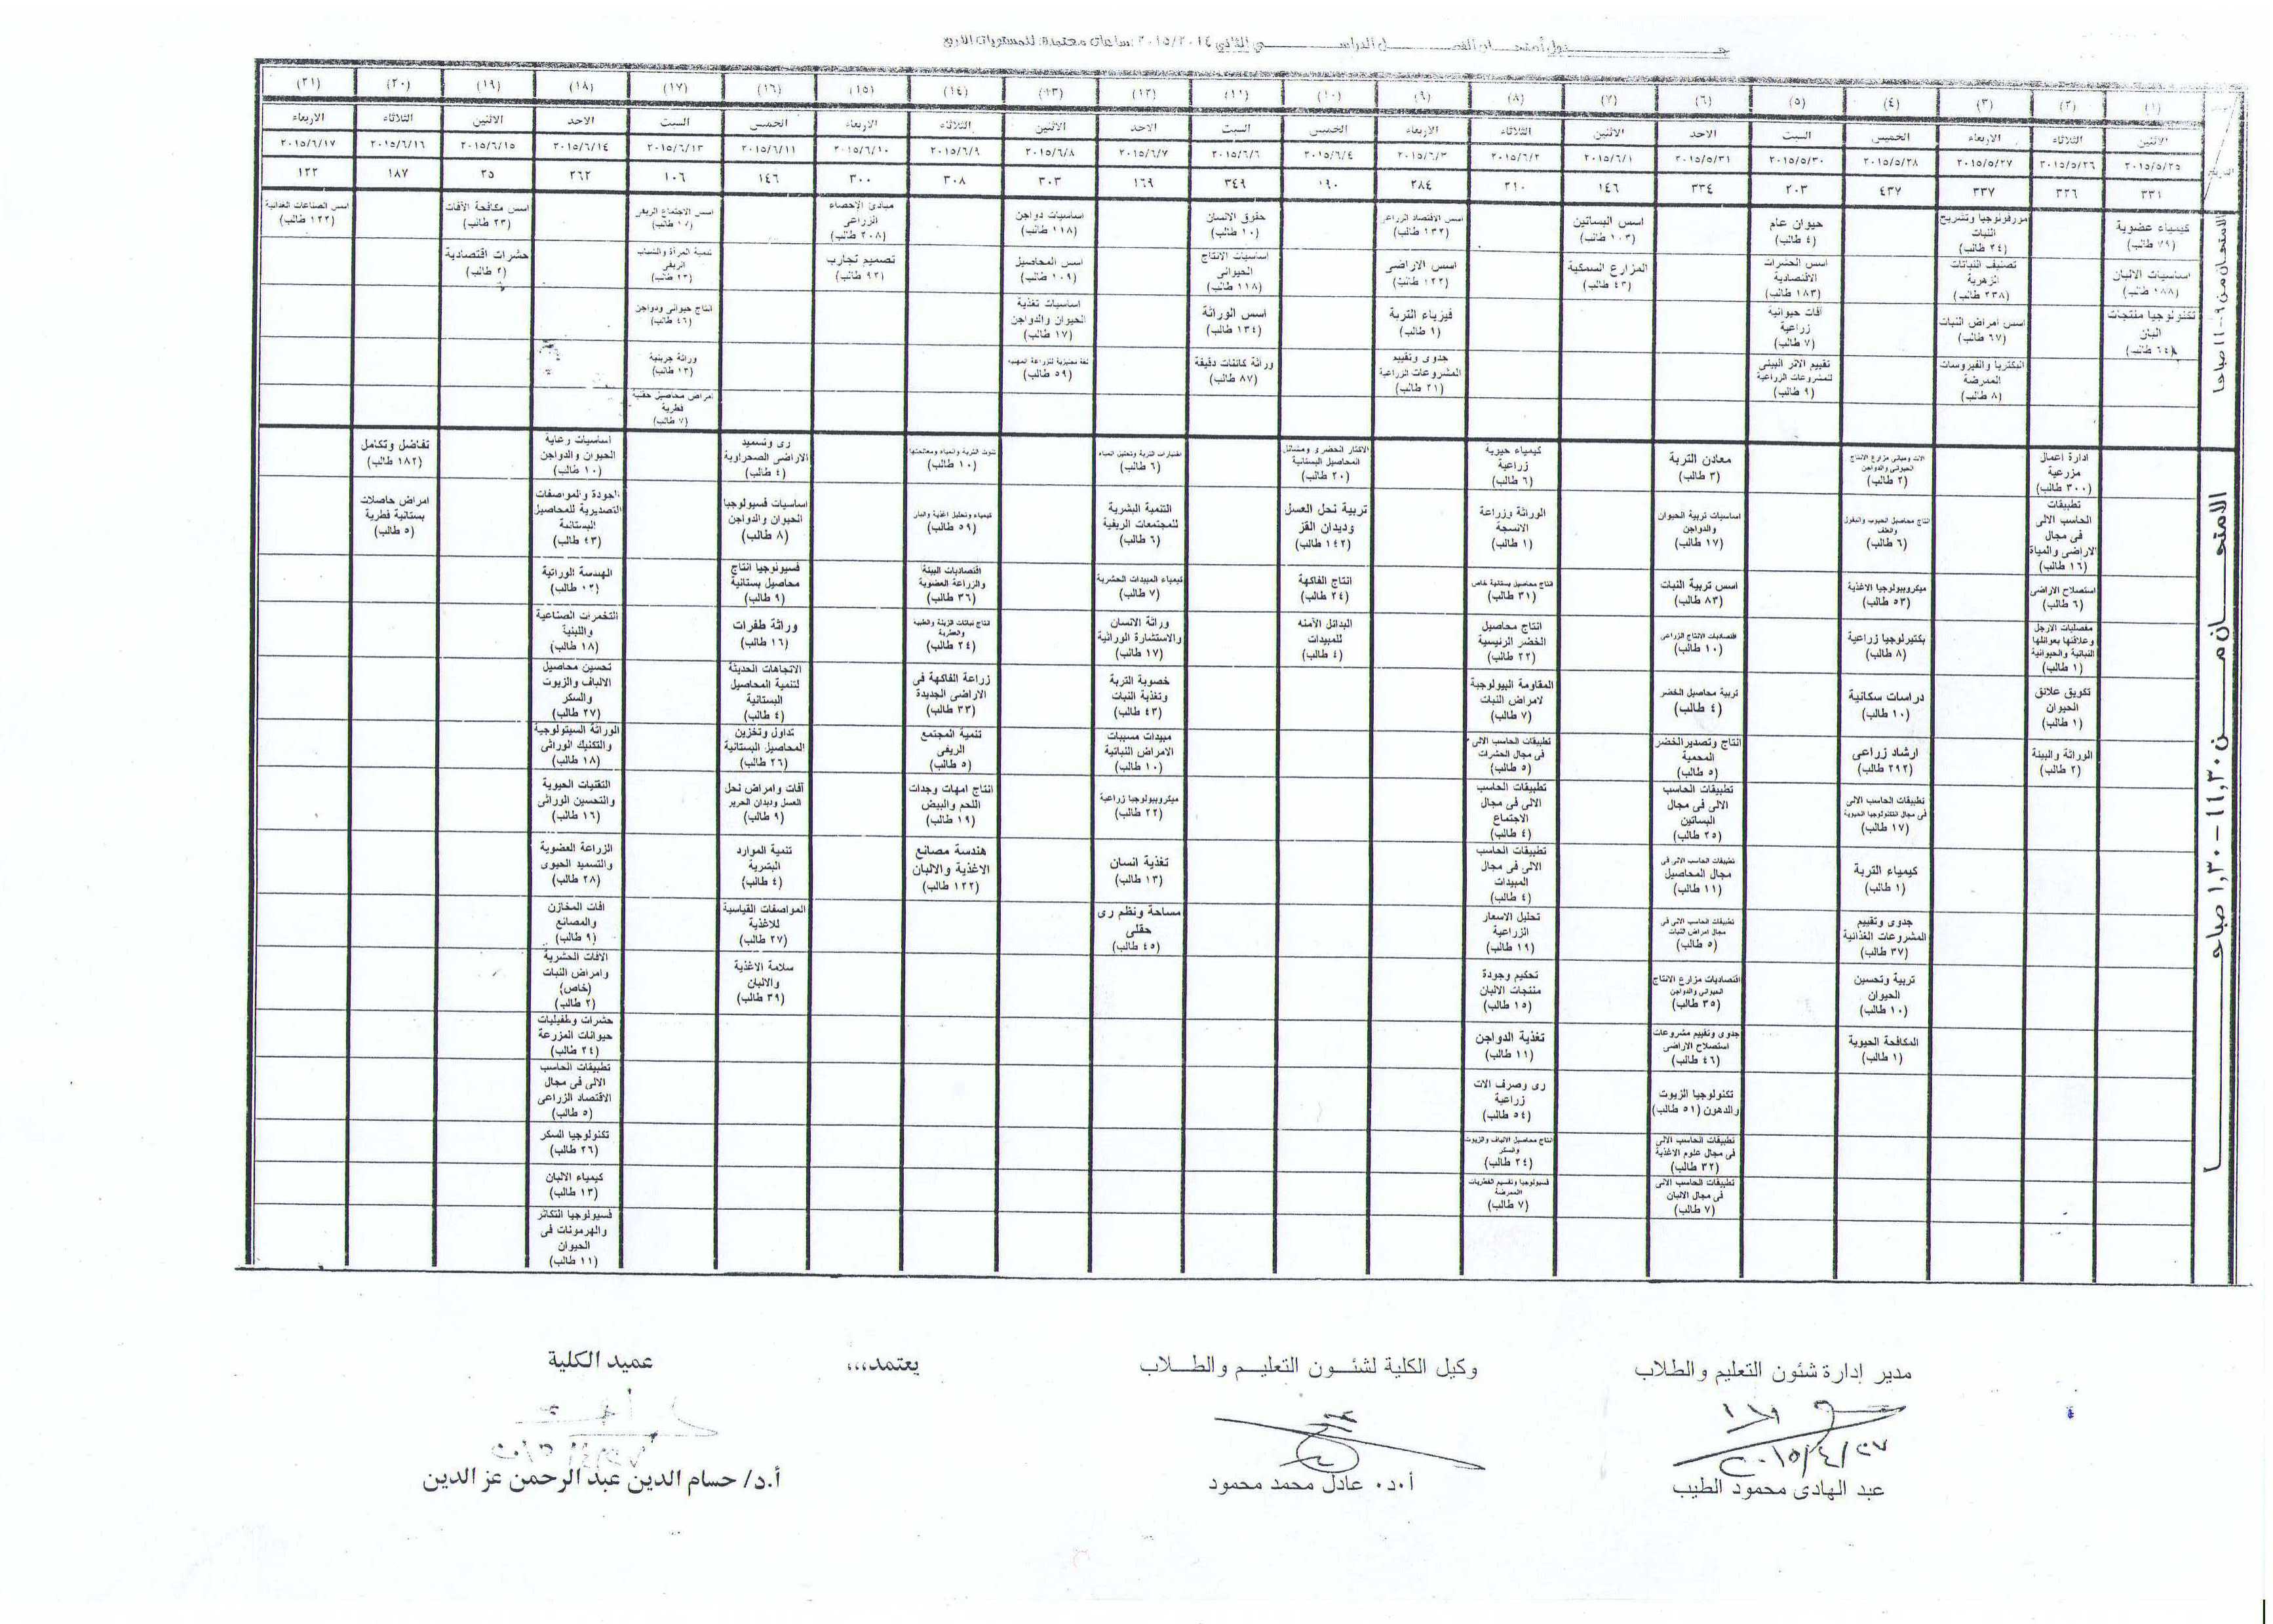 جــدول أمتحــان الفصــل الدراســي الثاني ٢٠١٥/٢٠١٤ ساعات معتمدة للمستويات الاربع
(١) (٢) (٣) (٤) (٥) (٦) (٧) (٨) (٩) (١٠) (١١) (١٢) (١٣) (١٤) (١٥) (١٦) (١٧) (١٨) (١٩) (٢٠) (٢١)
التاريخ الاثنين الثلاثاء الاربعاء الخميس السبت الاحد الاثنين الثلاثاء الاربعاء الخميس السبت الاحد الاثنين الثلاثاء الاربعاء الخميس السبت الاحد الاثنين الثلاثاء الاربعاء
٢٠١٥/٥/٢٥ ٢٠١٥/٥/٢٦ ٢٠١٥/٥/٢٧ ٢٠١٥/٥/٢٨ ٢٠١٥/٥/٣٠ ٢٠١٥/٥/٣١ ٢٠١٥/٦/١ ٢٠١٥/٦/٢ ٢٠١٥/٦/٣ ٢٠١٥/٦/٤ ٢٠١٥/٦/٦ ٢٠١٥/٦/٧ ٢٠١٥/٦/٨ ٢٠١٥/٦/٩ ٢٠١٥/٦/١٠ ٢٠١٥/٦/١١ ٢٠١٥/٦/١٣ ٢٠١٥/٦/١٤ ٢٠١٥/٦/١٥ ٢٠١٥/٦/١٦ ٢٠١٥/٦/١٧
٣٣١ ٣٢٦ ٣٣٧ ٤٣٧ ٢٠٣ ٣٣٤ ١٤٦ ٢١٠ ٢٨٤ ١٩٠ ٣٤٩ ١٦٩ ٣٠٣ ٣٠٨ ٣٠٠ ١٤٦ ١٠٦ ٢٦٢ ٢٥ ١٨٧ ١٢٢
الامتحان من ٩ - ١١ صباحا
كيمياء عضوية
(٧٩ طالب)
اساسيات الالبان
(١٨٨ طالب)
تكنولوجيا منتجات
البان
(٦٤ طالب)
مورفولوجيا وتشريح
النبات
(٢٤ طالب)
تصنيف النباتات
الزهرية
(٢٣٨ طالب)
اسس امراض النبات
(٦٧ طالب)
البكتريا والفيروسات
الممرضة
(٨ طالب)
حيوان عام
(٤ طالب)
اسس الحشرات
الاقتصادية
(١٨٣ طالب)
آفات حيوانية
زراعية
(٧ طالب)
تقييم الاثر البيئى
للمشروعات الزراعية
(٩ طالب)
اسس البساتين
(١٠٣ طالب)
المزارع السمكية
(٤٣ طالب)
اسس الاقتصاد الزراعى
(١٣٢ طالب)
اسس الاراضى
(١٢٢ طالب)
فيزياء التربة
(١ طالب)
جدوى وتقييم
المشروعات الزراعية
(٢١ طالب)
حقوق الانسان
(١٠ طالب)
اساسيات الانتاج
الحيوانى
(١١٨ طالب)
اسس الوراثة
(١٣٤ طالب)
وراثة كائنات دقيقة
(٨٧ طالب)
اساسيات دواجن
(١١٨ طالب)
اسس المحاصيل
(١٠٩ طالب)
اساسيات تغذية
الحيوان والدواجن
(١٧ طالب)
لغة انجليزية للزراعة المهنية
(٥٩ طالب)
مبادئ الإحصاء
الزراعى
(٢٠٨ طالب)
تصميم تجارب
(٩٢ طالب)
اسس الاجتماع الريفى
(١٧ طالب)
تنمية المرأة والشباب
الريفى
(٢٣ طالب)
انتاج حيوانى ودواجن
(٤٦ طالب)
وراثة جزيئية
(١٣ طالب)
امراض محاصيل حقلية
فطرية
(٧ طالب)
اسس مكافحة الآفات
(٢٣ طالب)
حشرات اقتصادية
(٢ طالب)
اسس الصناعات الغذائية
(١٢٢ طالب)
الامتحــان مــن ١١,٣٠ - ١,٣٠ صباحــا
ادارة اعمال
مزرعية
(٣٠٠ طالب)
تطبيقات
الحاسب الالى
فى مجال
الاراضى والمياة
(١٦ طالب)
استصلاح الاراضى
(٦ طالب)
مفصليات الارجل
وعلاقتها بعوائلها
النباتية والحيوانية
(١ طالب)
تكويق علائق
الحيوان
(١ طالب)
الوراثة والبيئة
(٢ طالب)
الات ومبانى مزارع الانتاج
الحيوانى والدواجن
(٢ طالب)
انتاج محاصيل الحبوب والبقول
والعلف
(٦ طالب)
ميكروبيولوجيا الاغذية
(٥٣ طالب)
بكتيرلوجيا زراعية
(٨ طالب)
دراسات سكانية
(١٠ طالب)
ارشاد زراعى
(٢٩٢ طالب)
تطبيقات الحاسب الالى
فى مجال التكنولوجيا الحيوية
(١٧ طالب)
كيمياء التربة
(١ طالب)
جدوى وتقييم
المشروعات الغذائية
(٣٧ طالب)
تربية وتحسين
الحيوان
(١٠ طالب)
المكافحة الحيوية
(١ طالب)
معادن التربة
(٣ طالب)
اساسيات تربية الحيوان
والدواجن
(١٧ طالب)
اسس تربية النبات
(٨٣ طالب)
اقتصاديات الانتاج الزراعى
(١٠ طالب)
تربية محاصيل الخضر
(٤ طالب)
انتاج وتصدير الخضر
المحمية
(٥ طالب)
تطبيقات الحاسب
الالى فى مجال
البساتين
(٢٥ طالب)
تطبيقات الحاسب الالى فى
مجال المحاصيل
(١١ طالب)
تطبيقات الحاسب الالى فى
مجال امراض النبات
(٥ طالب)
اقتصاديات مزارع الانتاج
الحيوانى والدواجن
(٣٥ طالب)
جدوى وتقييم مشروعات
استصلاح الاراضى
(٤٦ طالب)
تكنولوجيا الزيوت
والدهون (٥١ طالب)
تطبيقات الحاسب الالى
فى مجال علوم الاغذية
(٣٢ طالب)
تطبيقات الحاسب الالى
فى مجال الالبان
(٧ طالب)
كيمياء حيوية
زراعية
(٦ طالب)
الوراثة وزراعة
الانسجة
(١ طالب)
انتاج محاصيل بستانية خاص
(٣١ طالب)
انتاج محاصيل
الخضر الرئيسية
(٢٢ طالب)
المقاومة البيولوجية
لامراض النبات
(٧ طالب)
تطبيقات الحاسب الالى
فى مجال الحشرات
(٥ طالب)
تطبيقات الحاسب
الالى فى مجال
الاجتماع
(٤ طالب)
تطبيقات الحاسب
الالى فى مجال
المبيدات
(٤ طالب)
تحليل الاسعار
الزراعية
(١٩ طالب)
تحكيم وجودة
منتجات الالبان
(١٥ طالب)
تغذية الدواجن
(١١ طالب)
رى وصرف الات
زراعية
(٥٤ طالب)
انتاج محاصيل الالياف والزيوت
والسكر
(٢٤ طالب)
فسيولوجيا وتقسيم الفطريات
الممرضة
(٧ طالب)
الاكثار الخضرى ومشاتل
المحاصيل البستانية
(٢٠ طالب)
تربية نحل العسل
وديدان القز
(١٤٢ طالب)
انتاج الفاكهة
(٢٤ طالب)
البدائل الآمنه
للمبيدات
(٤ طالب)
اختبارات التربة وتحليل المياه
(٦ طالب)
التنمية البشرية
للمجتمعات الريفية
(٦ طالب)
كيمياء المبيدات الحشرية
(٧ طالب)
وراثة الانسان
والاستشارة الوراثية
(١٧ طالب)
خصوبة التربة
وتغذية النبات
(٤٣ طالب)
مبيدات مسببات
الامراض النباتية
(١٠ طالب)
ميكروبيولوجيا زراعية
(٢٢ طالب)
تغذية انسان
(١٣ طالب)
مساحة ونظم رى
حقلى
(٤٥ طالب)
تلوث التربة والمياه ومعالجتها
(١٠ طالب)
كيمياء وتحليل اغذية والبان
(٥٩ طالب)
اقتصاديات البيئة
والزراعة العضوية
(٣٦ طالب)
انتاج نباتات الزينة والطبية
والعطرية
(٢٤ طالب)
زراعة الفاكهة فى
الاراضى الجديدة
(٣٣ طالب)
تنمية المجتمع
الريفى
(٥ طالب)
انتاج امهات وجدات
اللحم والبيض
(١٩ طالب)
هندسة مصانع
الاغذية والالبان
(١٢٢ طالب)
رى وتسميد
الاراضى الصحراوية
(٤ طالب)
اساسيات فسيولوجيا
الحيوان والدواجن
(٨ طالب)
فسيولوجيا انتاج
محاصيل بستانية
(٩ طالب)
وراثة طفرات
(١٦ طالب)
الاتجاهات الحديثة
لتنمية المحاصيل
البستانية
(٤ طالب)
تداول وتخزين
المحاصيل البستانية
(٢٦ طالب)
آفات وامراض نحل
العسل وديدان الحرير
(٩ طالب)
تنمية الموارد
البشرية
(٤ طالب)
المواصفات القياسية
للاغذية
(٢٧ طالب)
سلامة الاغذية
والالبان
(٣٩ طالب)
اساسيات رعاية
الحيوان والدواجن
(١٠ طالب)
الجودة والمواصفات
التصديرية للمحاصيل
البستانية
(٤٣ طالب)
الهندسة الوراثية
(١٢ طالب)
التخمرات الصناعية
واللبنية
(١٨ طالب)
تحسين محاصيل
الالياف والزيوت
والسكر
(٢٧ طالب)
الوراثة السيتولوجية
والتكنيك الوراثى
(١٨ طالب)
التقنيات الحيوية
والتحسين الوراثى
(١٦ طالب)
الزراعة العضوية
والتسميد الحيوى
(٢٨ طالب)
افات المخازن
والمصانع
(٩ طالب)
الافات الحشرية
وامراض النبات
(خاص)
(٢ طالب)
حشرات وطفيليات
حيوانات المزرعة
(٢٤ طالب)
تطبيقات الحاسب
الالى فى مجال
الاقتصاد الزراعى
(٥ طالب)
تكنولوجيا السكر
(٢٦ طالب)
كيمياء الالبان
(١٣ طالب)
فسيولوجيا التكاثر
والهرمونات فى
الحيوان
(١١ طالب)
تفاضل وتكامل
(١٨٢ طالب)
امراض حاصلات
بستانية فطرية
(٥ طالب)
مدير إدارة شئون التعليم والطلاب وكيل الكلية لشئــون التعليــم والطــلاب يعتمد،،،، عميد الكلية
٢٠١٥/٤/٢٧
عبد الهادى محمود الطيب أ.د. عادل محمد محمود أ.د/ حسام الدين عبد الرحمن عز الدين